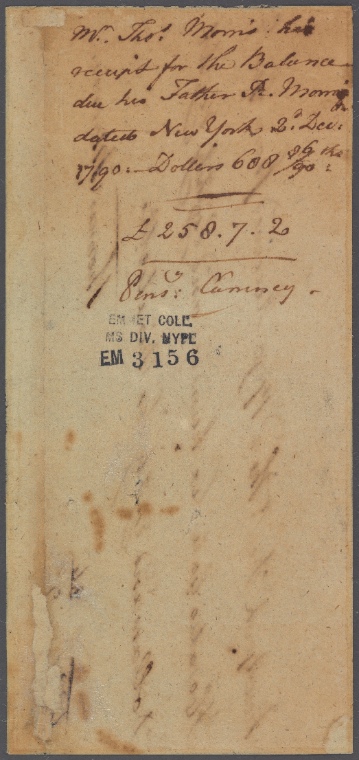 Mr. Thos. Morris his
receipt for the Balance
due his Father R. Morris
dated New York 2d. Dec:
1790:— Dollars 688 86/90 ths:
£ 258.7.2
Pensa. Currency.
EMMET COLL.
MS DIV. NYPL
EM 3156